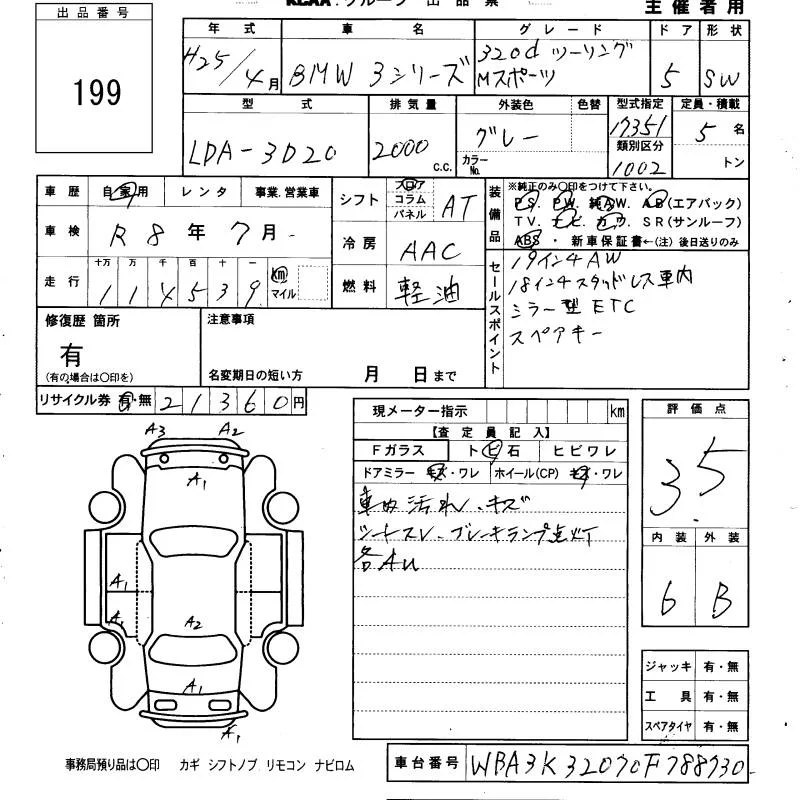 KCAA.グループ 出品票
主催者用
出品番号
199
年式 車名 グレード ドア 形状
H25/4月 BMW 3シリーズ 320d ツーリング Mスポーツ 5 SW
型式 排気量 外装色 色替 型式指定 定員・積載
LDA-3D20 2000 C.C. グレー カラーNo. 17351 5名
類別区分
1002 トン
車歴 自家用 レンタ 事業.営業車
シフト フロア コラム パネル AT
装備品 ※純正のみ○印をつけて下さい。
PS. PW. 純AW. AB(エアバッグ)
TV. ナビ. カワ. SR(サンルーフ)
ABS ・ 新車保証書←(注) 後日送りのみ
車検 R8年7月
冷房 AAC
走行 十万 万 千 百 十 一
114539 km マイル
燃料 軽油
セールスポイント
19インチAW
18インチスタッドレス車内
ミラー型ETC
スペアキー
修復歴 箇所
有
(有の場合は○印を)
注意事項
名変期日の短い方 月 日まで
リサイクル券 有・無 21360円
現メーター指示 km
【査定員記入】
Fガラス トビ石 ヒビワレ
ドアミラー キズ・ワレ ホイール(CP) キズ・ワレ
車内汚れ、キズ
シートスレ、ブレーキランプ点灯
各AU
評価点
3.5
内装 外装
6 B
A3 A2
A1
A1
A1
A2
A1
A1
ジャッキ 有・無
工具 有・無
スペアタイヤ 有・無
事務局預り品は○印 カギ シフトノブ リモコン ナビロム
車台番号 WBA3K32070F788730